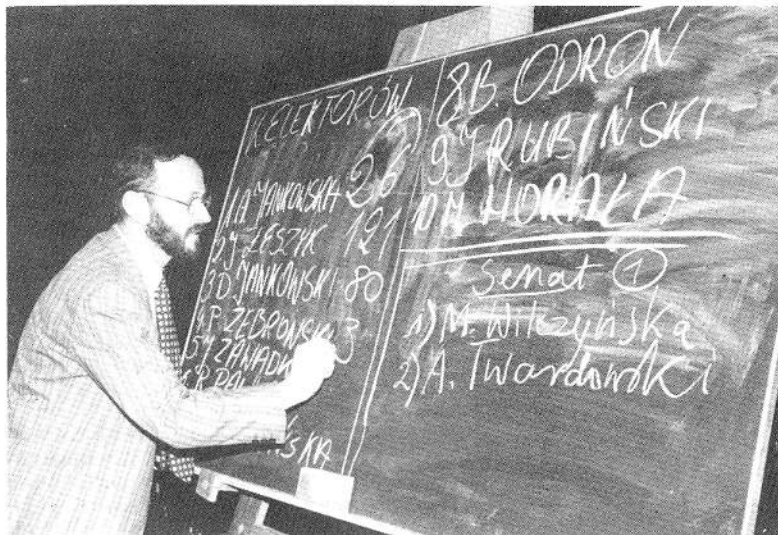 ELEKTORÓW
1. A. JANKOWSKA 26
2) J. LESZYK 121
3. D. JANKOWSKI 80
4. P. ZEBROWSKI 3
5) J. ZAWAD
6. R. PAW
SKA
8. B. ODROŃ
9. J. RUBIŃSKI
10. M. HORAŁA
Senat 1
1) M. Wilczyńska
2) A. Twardowski